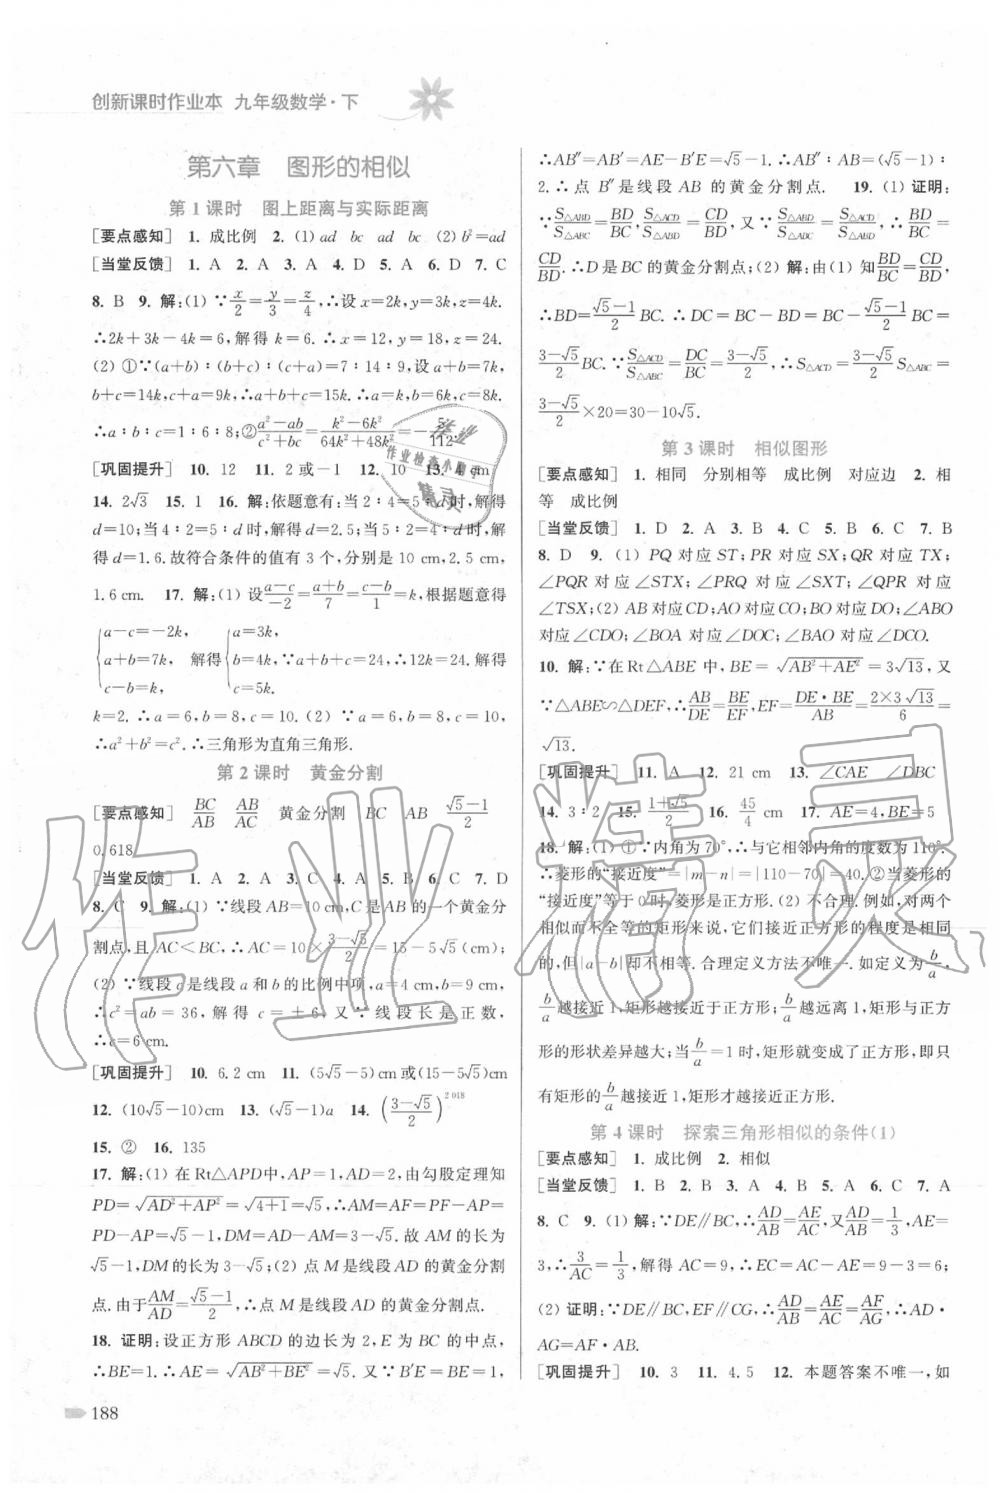 创新课时作业本 九年级数学·下
第六章 图形的相似
第1课时 图上距离与实际距离
[要点感知] 1. 成比例 2. (1) ad bc ad bc (2) b²=ad
[当堂反馈] 1. A 2. A 3. A 4. D 5. A 6. D 7. C
8. B 9. 解:(1) ∵x/2=y/3=z/4,∴设 x=2k,y=3k,z=4k.
∴2k+3k-4k=6,解得 k=6.∴x=12,y=18,z=24.
(2) ①∵(a+b)∶(b+c)∶(c+a)=7∶14∶9,设a+b=7k,
b+c=14k,c+a=9k,∴a+b+c=15k.∴a=k,b=6k,c=8k.
∴a∶b∶c=1∶6∶8;②(a²-ab)/(c²+bc)=(k²-6k²)/(64k²+48k²)=-5/112
[巩固提升] 10. 12 11. 2 或-1 12. 10 13. 4 cm
14. 2√3 15. 1 16. 解:依题意有:当2∶4=5∶d时,解得
d=10;当4∶2=5∶d时,解得d=2.5;当5∶2=4∶d时,解得
d=1.6.故符合条件的值有 3 个,分别是 10 cm,2.5 cm,
1.6 cm. 17. 解:(1) 设(a-c)/(-2)=(a+b)/7=(c-b)/1=k,根据题意得
{a-c=-2k, a+b=7k, c-b=k, 解得{a=3k, b=4k, c=5k. ∵a+b+c=24,∴3k+4k+5k=24,解得
k=2. ∴a=6,b=8,c=10. (2) ∵a=6,b=8,c=10,
∴a²+b²=c².∴三角形为直角三角形.
第2课时 黄金分割
[要点感知] BC/AB AB/AC 黄金分割 BC AB (√5-1)/2
0.618
[当堂反馈] 1. A 2. A 3. A 4. A 5. B 6. C 7. D
8. C 9. 解:(1) ∵线段AB=10 cm,C是AB的一个黄金分
割点,且 AC<BC,∴AC=10×(3-√5)/2=15-5√5(cm);
(2) ∵线段c是线段a和b的比例中项,a=4 cm,b=9 cm,
∴c²=ab=36,解得 c=±6.又∵线段长是正数,
∴c=6 cm.
[巩固提升] 10. 6.2 cm 11. (5√5-5)cm或(15-5√5)cm
12. (10√5-10)cm 13. (√5-1)a 14. ((3-√5)/2)^2018
15. ② 16. 135
17. 解:(1) 在Rt△APD中,AP=1,AD=2,由勾股定理知
PD=√(AD²+AP²)=√(4+1)=√5,∴AM=AF=PF-AP=
PD-AP=√5-1,DM=AD-AM=3-√5.故 AM 的长为
√5-1,DM的长为3-√5;(2) 点M是线段AD的黄金分割
点.由于AM/AD=(√5-1)/2,∴点 M 是线段 AD 的黄金分割点.
18. 证明:设正方形 ABCD 的边长为 2,E 为 BC 的中点,
∴BE=1.∴AE=√(AB²+BE²)=√5. 又∵B′E=BE=1,
188
∴AB″=AB′=AE-B′E=√5-1.∴AB″∶AB=(√5-1)∶
2.∴点 B″是线段 AB 的黄金分割点. 19. (1) 证明:
∵S△ABD/S△ABC=BD/BC,S△ACD/S△ABD=CD/BD,又∵S△ABD/S△ABC=S△ACD/S△ABD,∴BD/BC=
CD/BD.∴D是BC的黄金分割点;(2) 解:由(1)知BD/BC=CD/BD,
∴BD=(√5-1)/2 BC. ∴DC=BC-BD=BC-(√5-1)/2 BC=
(3-√5)/2 BC.∵S△ACD/S△ABC=DC/BC=(3-√5)/2,∴S△ACD=(3-√5)/2 S△ABC=
(3-√5)/2×20=30-10√5.
第3课时 相似图形
[要点感知] 1. 相同 分别相等 成比例 对应边 2. 相
等 成比例
[当堂反馈] 1. D 2. A 3. B 4. B 5. C 6. C 7. B
8. D 9. (1) PQ 对应 ST;PR 对应 SX;QR 对应 TX;
∠PQR 对应∠STX;∠PRQ 对应∠SXT;∠QPR 对应
∠TSX;(2) AB对应CD;AO对应CO;BO对应DO;∠ABO
对应∠CDO;∠BOA 对应∠DOC;∠BAO 对应∠DCO.
10. 解:∵在 Rt△ABE 中,BE=√(AB²+AE²)=3√13,又
∵△ABE∽△DEF,∴AB/DE=BE/EF,EF=(DE·BE)/AB=(2×3√13)/6=
√13.
[巩固提升] 11. A 12. 21 cm 13. ∠CAE ∠DBC
14. 3∶2 15. (1+√5)/2 16. 45/4 cm 17. AE=4,BE=5
18. 解:(1) ①∵内角为70°,∴与它相邻内角的度数为110°.
∴菱形的“接近度”=|m-n|=|110-70|=40.②当菱形的
“接近度”等于0时,菱形是正方形.(2) 不合理.例如,对两个
相似而不全等的矩形来说,它们接近正方形的程度是相同
的,但|a-b|却不相等.合理定义方法不唯一.如定义为b/a,
b/a越接近1,矩形越接近于正方形;b/a越远离1,矩形与正方
形的形状差异越大;当b/a=1时,矩形就变成了正方形,即只
有矩形的b/a越接近1,矩形才越接近正方形.
第4课时 探索三角形相似的条件(1)
[要点感知] 1. 成比例 2. 相似
[当堂反馈] 1. B 2. B 3. A 4. B 5. A 6. C 7. A
8. C 9. (1) 解:∵DE∥BC,∴AD/AB=AE/AC,又AD/AB=1/3,AE=
3,∴3/AC=1/3,解得 AC=9,∴EC=AC-AE=9-3=6;
(2) 证明:∵DE∥BC,EF∥CG,∴AD/AB=AE/AC=AF/AG,∴AD·
AG=AF·AB.
[巩固提升] 10. 3 11. 4.5 12. 本题答案不唯一,如
作业
作业检查小助手
精灵
作业精灵